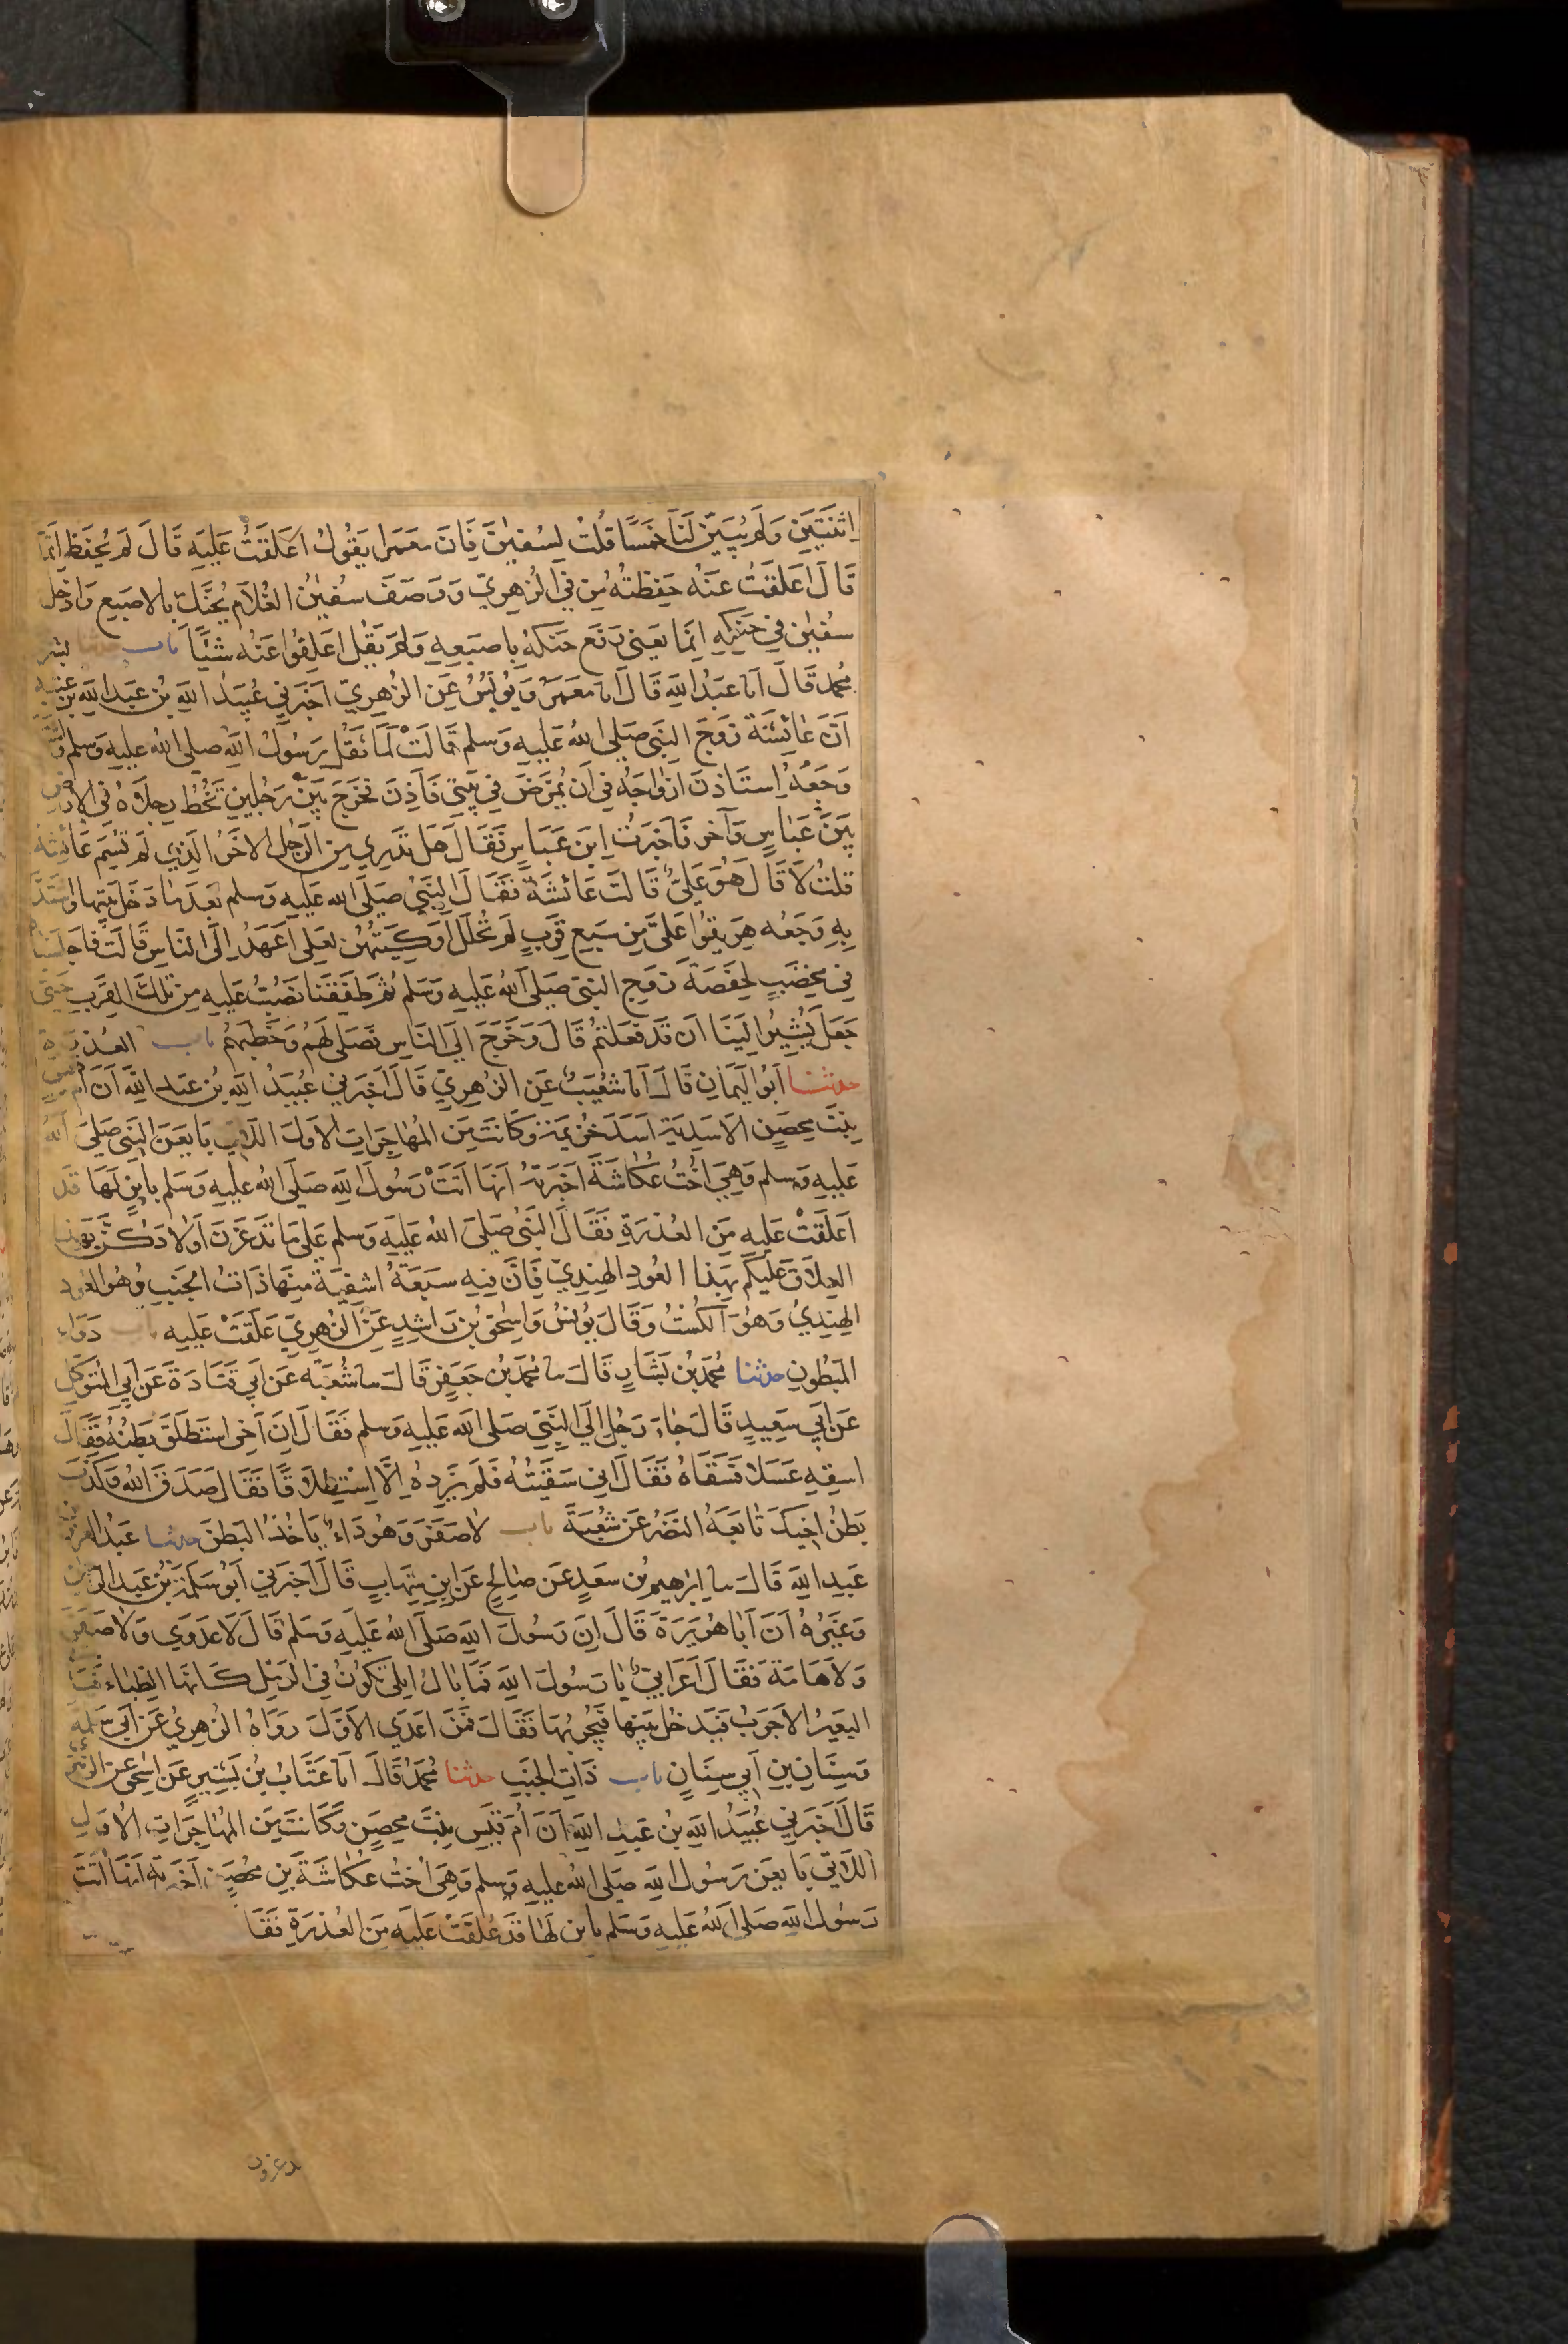 اِثنَتَيَنِ وَلَم يُبَيِّن لَنَا خَمسًا قُلتُ لِسُفيٰنَ فَاِنَّ مَعمَرا يَقُولُ اَعلَقتُ عَلَيهِ قَالَ لَم يُحفَظ اِنَّمَا
قَالَ اَعلَقتُ عَنهُ حَفِظتُهُ مِن فِي الزُهرِيِّ وَوَصَفَ سُفيٰنُ الغُلَامَ يُحَنَّكُ بِالاصبَعِ وَادخَلَ
سُفيٰن فِي حَنَكِهِ اِنَّمَا يَعنِي رَفَع حَنَكَهُ بِاصبَعِهِ وَلَم يَقُل اَعلِقُوا عَنه شَئًا باب حدثنا بشر
محُمد قَالَ اَنا عَبُد اللهِ قَالَ اَنا مَعمَرٌ وَيُونُسُ عَنِ الزُهرِيِّ اَخبَرَنِي عُبَيدُ اللهِ بُن عَبدِ اللهِ بن عتبة
اَنَّ عَائِشَةَ زَوجَ النَبِي صَلى اللهُ عَلَيهِ وَسلم قَالَتْ لَمَّا ثَقُلَ رَسُولُ اللهِ صلى الله عليهِ وَسلم وَاشتَدَّ
وَجَعُهُ اِستَاذَنَ ازوَاجَهُ فِي اَن يُمَرَّضَ فِي بَيتِي فَاَذِنَّ فَخَرَجَ بَينَ رَجُلَينِ تَخُطُّ رِجلَاهُ في الارض
بَينَ عَبَاسٍ وَآخَرَ فَاَخبَرتُ اِبنَ عَبَّاسٍ فَقَالَ هَل تَدرِي مَنِ الرَجُلُ الاخَرُ الَذِي لَم تُسَمِّ عَائِشة
قلتُ لَا قَالَ هُوَ عَلِيٌّ قَالَت عَائشَةُ فَقَالَ النَبِيُ صَلَى الله عَلَيهِ وسلم بَعدَ مَا دَخَلَ بَيتَها وَاشتَدَّ
بِهِ وَجَعُه هَرِيقُوا عَلَيَّ مِن سَبعِ قِرَبٍ لَم تُحلَل اَوكِيَتُهُنَّ لعَلِي اَعهَدُ اِلَى النَاسِ قَالَت فَاَجلَسنَاهُ
فِي مِخضَبٍ لِحَفصَةَ زَوجِ النبيِ صَلى اللهُ عَلَيهِ وَسلم ثُمَّ طَفِقنَا نَصُبُّ عَلَيهِ مِن تِلكَ القِرَبِ حَتَّى
جَعَلَ يُشِيرُ اِلَينَا اَن قَد فَعَلتُم قَالَ وَخَرَجَ اِلَى النَاسِ فَصَلَى لَهُم وَخَطَبَهُم باب العُذرة
حدثنا اَبُو اليَمَانِ قَالَ اَنا شُعَيبٌ عَنِ الزُهرِيِّ قَالَ اَخبَرَنِي عُبَيدُ اللهِ بُن عَبد اللهِ اَن اُم قيس
بِنتَ مِحصَنٍ الاَسَدِيَة اَسَدَ خُزَيمَة وَكَانَت مِنَ المُهَاجِرَاتِ الاُوَلِ اللَاتِي بَايَعنَ النَبِيَ صَلى اللهُ
عَلَيهِ وَسلم وَهِيَ اُختُ عُكَاشَةَ اَخبَرَتهُ اَنَها اَتَتْ رَسُولَ اللهِ صَلَى الله عليهِ وَسَلم بِابنٍ لَهَا قَد
اَعلَقَتْ عَلَيهِ مِنَ العُذرَةِ فَقَالَ النَبِيُ صَلىَ اللهُ عَلَيهِ وَسلم عَلَى مَا تَدغَرنَ اَولَادَكُنَّ بِهَذا
العِلَاقِ عَلَيكُم بِهَذا العُودِ الهِندِيِّ فَاِنَّ فِيهِ سَبعَةَ اشفِيَةٍ مِنهَا ذَاتُ الجَنبِ وَهُوَ العُود
الهِندِيُ وَهُوَ الكُستُ وَقَالَ يُونُسُ وَاِسحٰق بُن رَاشِدٍ عَنِ الزُهرِيِّ عَلَّقَتْ عَلَيهِ باب دَوَاء
المَبطُونِ حدثنا مُحَمَدُ بُن بَشَارٍ قَالَ نا مُحَمَدُ بُن جَعفَرٍ قَالَ نا شُعبَة عَن اَبِي قَتَادَةَ عَن اَبِي المُتَوَكِّل
عَن اَبِي سَعِيدٍ قَالَ جَاءَ رَجُل اِلَى النَبِيِّ صَلى الله عَلَيهِ وَسلم فَقَالَ اِنَّ اَخِي استَطلَقَ بَطنُهُ فَقَالَ
اسقِهِ عَسَلا فَسَقَاهُ فَقَالَ اِنِي سَقَيتُهُ فَلَم يَزِدهُ اِلَّا اِستِطلَاقًا فَقَالَ صَدَقَ اللهُ وَكَذَبَ
بَطنُ اَخِيكَ تَابَعَهُ النَضرُ عَن شُعبَةَ باب لَا صَفَرَ وَهُوَ دَاءٌ يَاخُذُ البَطنَ حدثنا عَبدُ العزيز بن
عَبدِ اللهِ قَالَ نا اِبرٰهِيمُ بُن سَعدٍ عَن صَالِحٍ عَنِ ابنِ شِهَابٍ قَالَ اَخبَرَنِي اَبُو سَلَمَةَ بُن عَبدِ الرحمن
وَغَيرُهُ اَنَ اَبَا هُرَيرَةَ قَالَ اِنَ رَسُولَ اللهِ صَلَى اللهُ عَلَيهِ وَسَلم قَالَ لَا عَدوَى وَلَا صَفَرَ
وَلَا هَامَةَ فَقَالَ اَعرَابِيٌّ يَا رَسُولَ اللهِ فَمَا بَالُ اِبِلِي تَكُونُ فِي الرَملِ كَاَنَّهَا الظِبَاءُ فَيَأتي
البَعِيرُ الاَجرَبُ فَيَدخُلُ بَينَهَا فَيُجرِبُهَا فَقَالَ فَمَن اَعدَى الاَوَّلَ رَوَاهُ الزُهرِيُّ عَن اَبِي سَلَمة
وَسِنَانِ بنِ اَبِي سِنَانٍ باب ذَاتِ الجَنبِ حدثنا مُحَمَدٌ قَالَ اَنا عَتَّابُ بُن بَشِيرٍ عَن اِسحٰق عَن الزُهري
قَالَ اَخبَرَنِي عُبَيدُ اللهِ بُن عَبدِ اللهِ اَنَ اُمَ قَيسٍ بِنتَ مِحصَنٍ وَكَانَت مِنَ المُهَاجِرَاتِ الاُوَلِ
اللَاتِي بَايَعنَ رَسُولَ اللهِ صَلى اللهُ عَليهِ وَسلم وَهِيَ اُختُ عُكَاشَةَ بنِ مِحصَنٍ اَخبَرَتهُ اَنَهَا اَتَتْ
رَسُولَ اللهِ صَلى اللهُ عَلَيهِ وَسَلم بِابنٍ لَهَا قَد عَلَّقَتْ عَلَيهِ مِنَ العُذرَةِ فَقَا
تدغرون